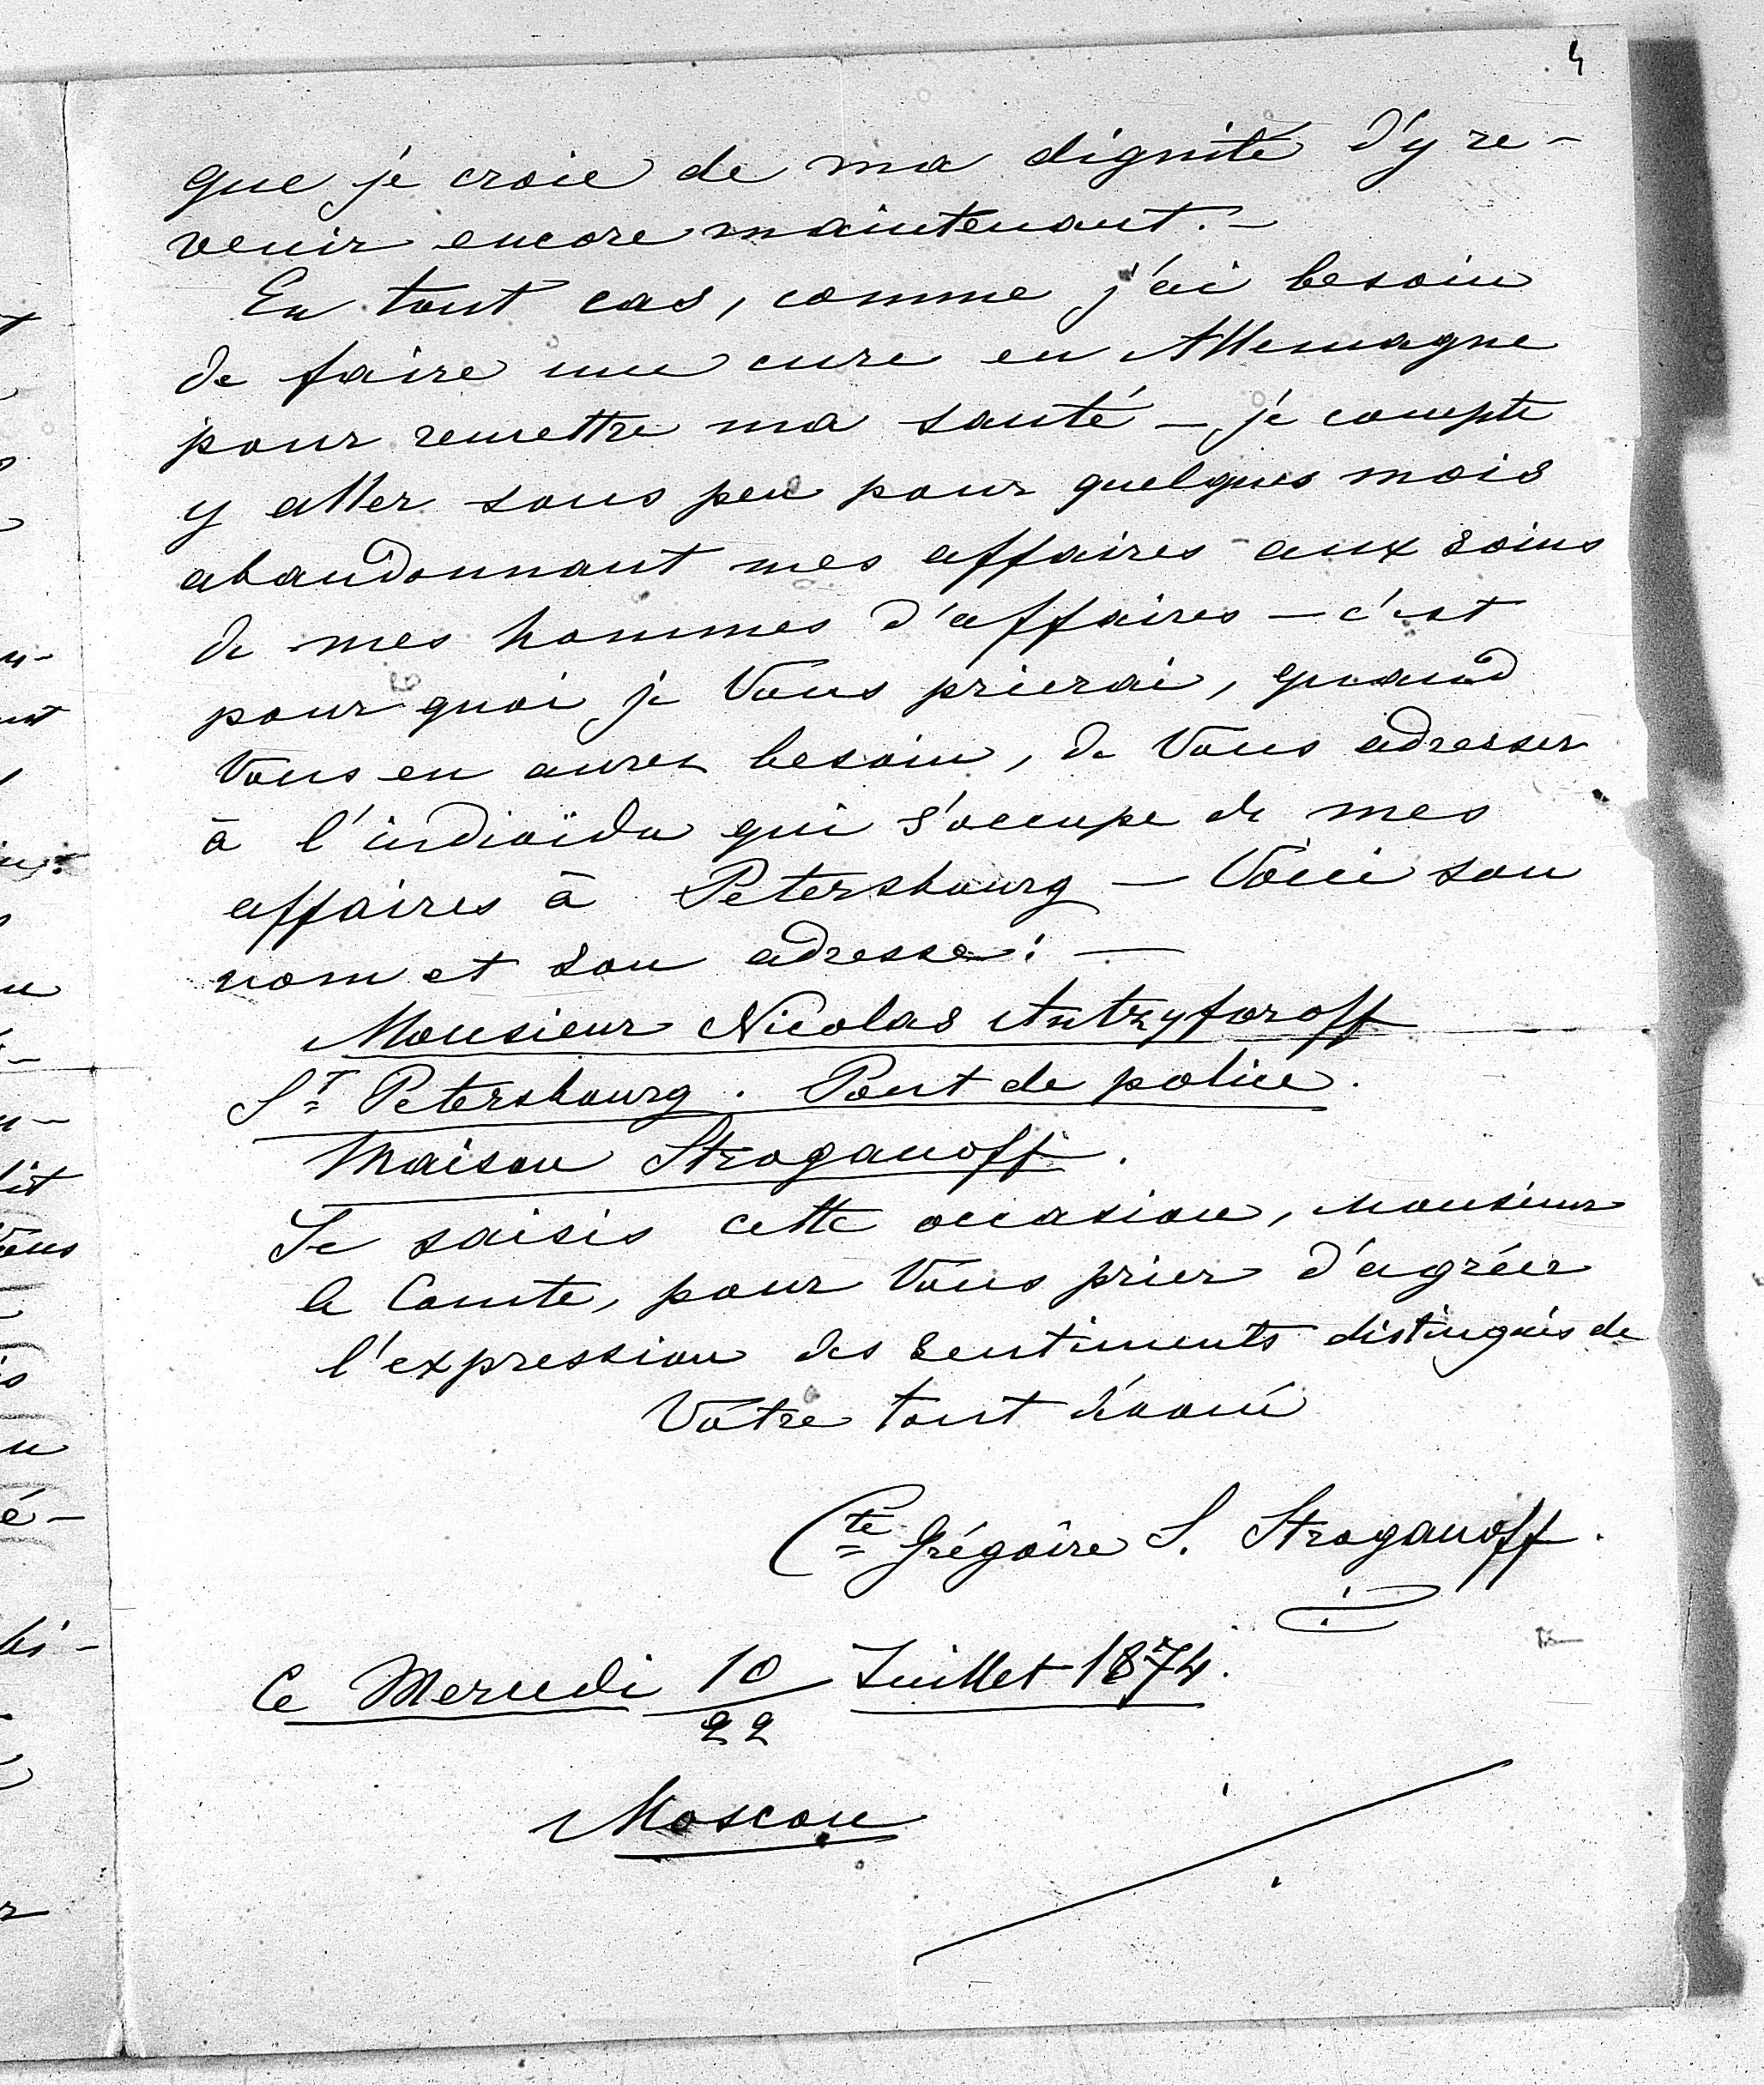 4
que je croie de ma dignité d'y re-
venir encore maintenant. -
En tout cas, comme j'ai besoin
de faire une cure en Allemagne
pour remettre ma santé - je compte
y aller sous peu pour quelques mois
abandonnant mes affaires aux soins
de mes hommes d'affaires - c'est
pourquoi je Vous prierai, quand
Vous en aurez besoin, de Vous adresser
à l'individu qui s'occupe de mes
affaires à Petersbourg - Voici son
nom et son adresse: -
Monsieur Nicolas Antzyforoff
St Petersbourg. Pont de police.
Maison Stroganoff.
Je saisis cette occasion, Monsieur
le Comte, pour Vous prier d'agréer
l'expression des sentiments distingués de
Vôtre tout dévoué
Cte Grégoire S. Stroganoff.
Ce Mercredi 10/22 Juillet 1874.
Moscou